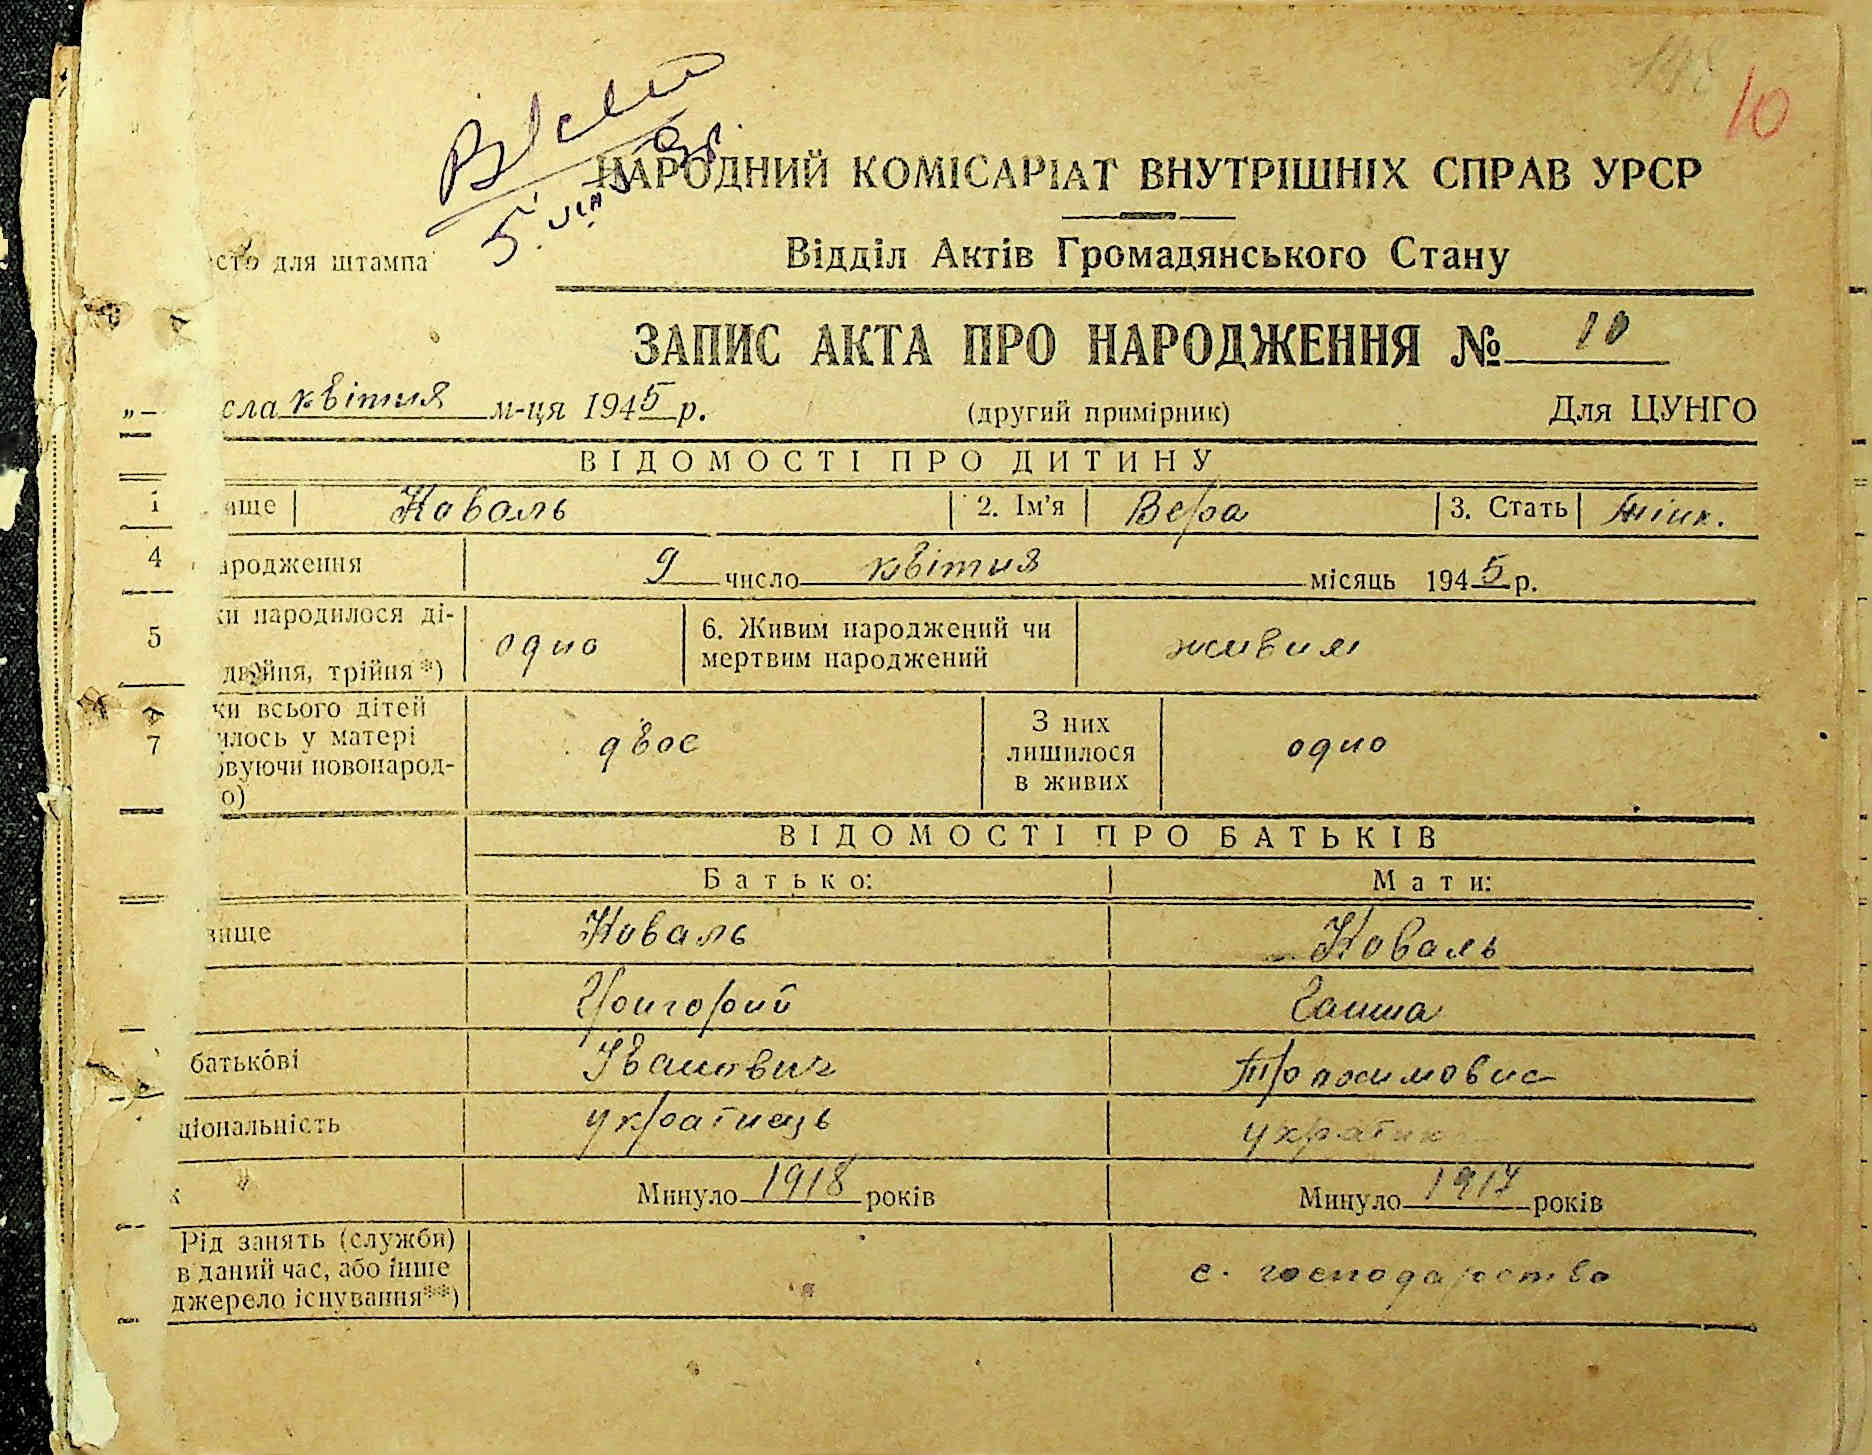 10
НАРОДНИЙ КОМІСАРІАТ ВНУТРІШНІХ СПРАВ УРСР
сто для штампа
Відділ Актів Громадянського Стану
ЗАПИС АКТА ПРО НАРОДЖЕННЯ № 10
„— сла квітня м-ця 1945 р. (другий примірник) Для ЦУНГО
ВІДОМОСТІ ПРО ДИТИНУ
1 ище Коваль 2. Ім'я Вера 3. Стать жіноч.
4 ародження 9 число квітня місяць 1945 р.
5 ки народилося ді-
двойня, трійня*) одно 6. Живим народжений чи
мертвим народжений живим
7 ки всього дітей
илось у матері
овуючи новонарод-
о) двоє З них
лишилося
в живих одно
ВІДОМОСТІ ПРО БАТЬКІВ
Батько: Мати:
вище Коваль Коваль
Григорий Ганна
батькові Іванович
ціональність українець українка
к Минуло 1918 років Минуло 1917 років
Рід занять (служби)
в даний час, або інше
джерело існування**) с. господарство